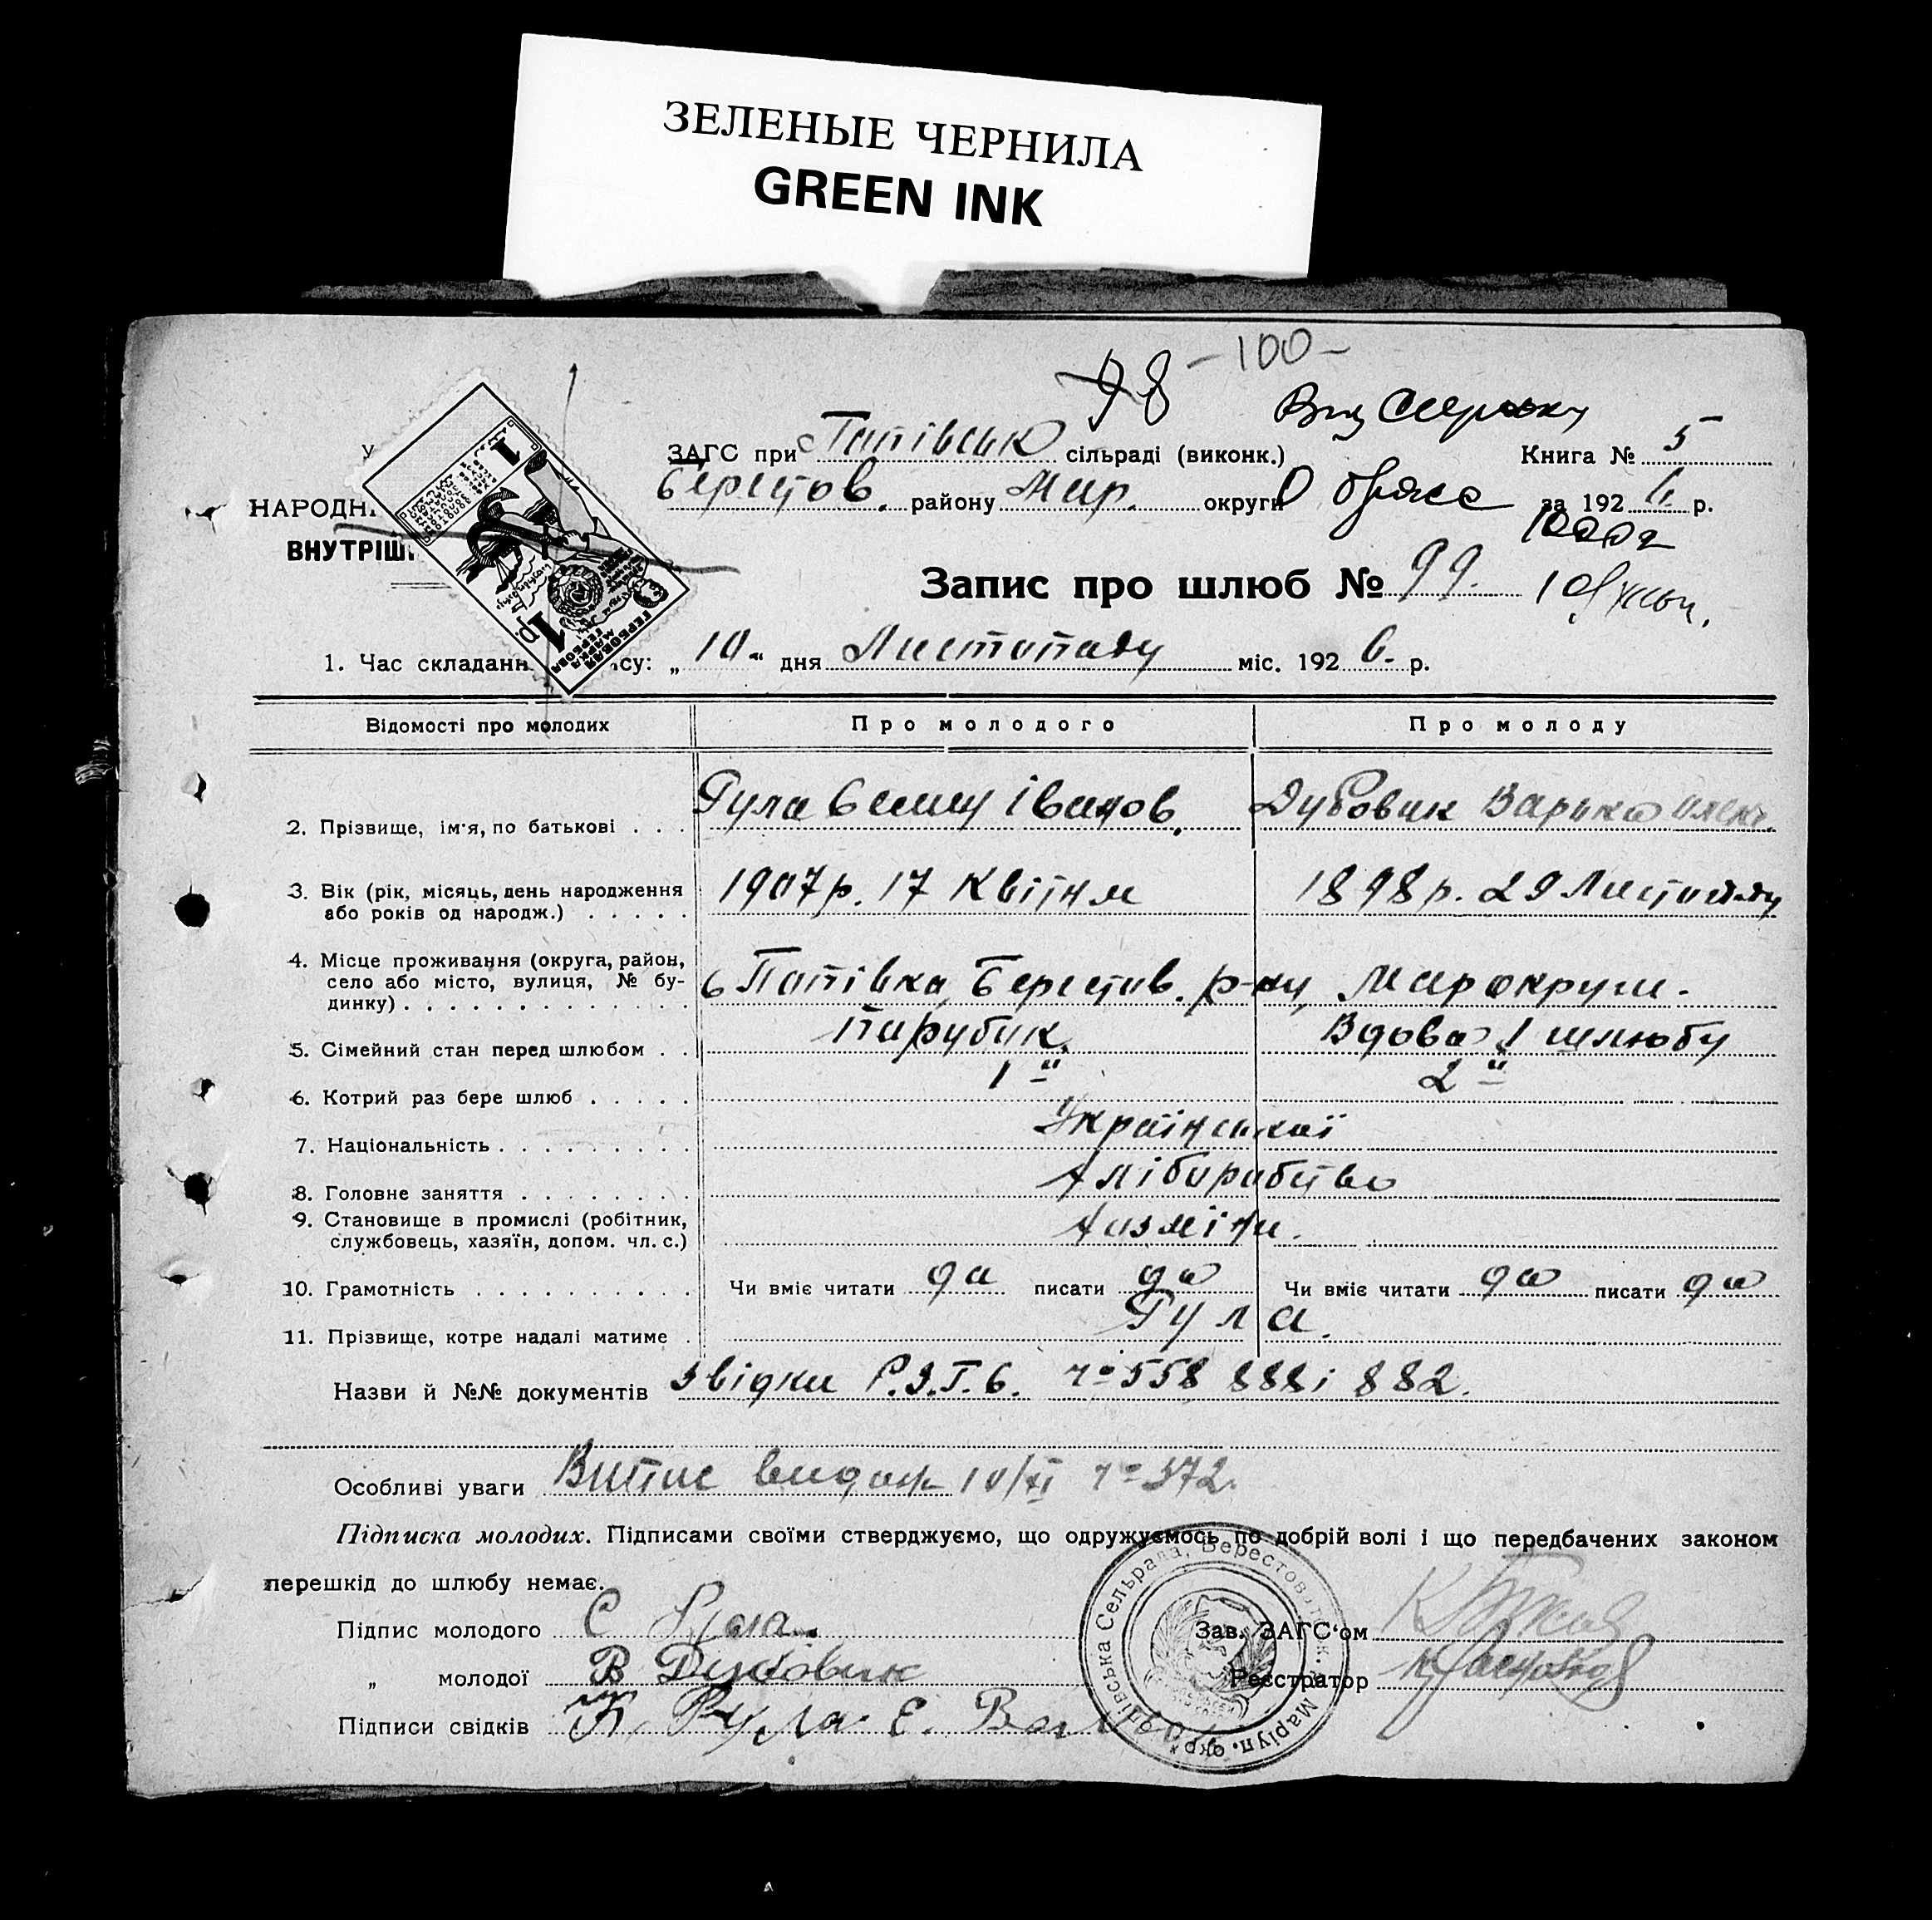 ЗЕЛЕНЫЕ ЧЕРНИЛА
GREEN INK
98 -100-
ЗАГС при Попівськ сільраді (виконк.) Книга № 5
Берестов. району Мар. округи за 1926 р.
НАРОДН
ВНУТРІШ
Запис про шлюб № 99.
1. Час складан су: „10" дня Листопаду міс. 1926. р.
Відомості про молодих Про молодого Про молоду
2. Прізвище, ім'я, по батькові . . . Рула Іванов. Дубовик Варька Олек.
3. Вік (рік, місяць, день народження 1907 р. 17 Квітня 1898 р. 29 Листопаду
або років од народж.) . . . . .
4. Місце проживання (округа, район,
село або місто, вулиця, № бу- Попівка, Берестов. р-ну, Мар округи.
динку) . . . . . . . . . . . .
5. Сімейний стан перед шлюбом . . Парубок. Вдова 1 шлюбу
6. Котрий раз бере шлюб . . . . . 1 " 2 "
7. Національність . . . . . . . . . Української
8. Головне заняття . . . . . . . . Хліборобство
9. Становище в промислі (робітник, Хазяїни.
службовець, хазяїн, допом. чл. с.)
10. Грамотність . . . . . . . . . . Чи вміє читати да писати да Чи вміє читати да писати да
11. Прізвище, котре надалі матиме . Рула.
Назви й №№ документів звідки № 558 888 і 882.
Особливі уваги Випис видан 10/XI № 372.
Підписка молодих. Підписами своїми стверджуємо, що одружуємось по добрій волі і що передбачених законом
перешкід до шлюбу немає.
Підпис молодого С Рула. Зав. ЗАГС'ом
„ молодої В Дубовик Реєстратор
Підписи свідків Рула. Е.
івська Сельрада, Берестов Маріуп. окр.
1 р.
1
ГЕРБОВАЯ
МАРКА
ГЕРБОВА